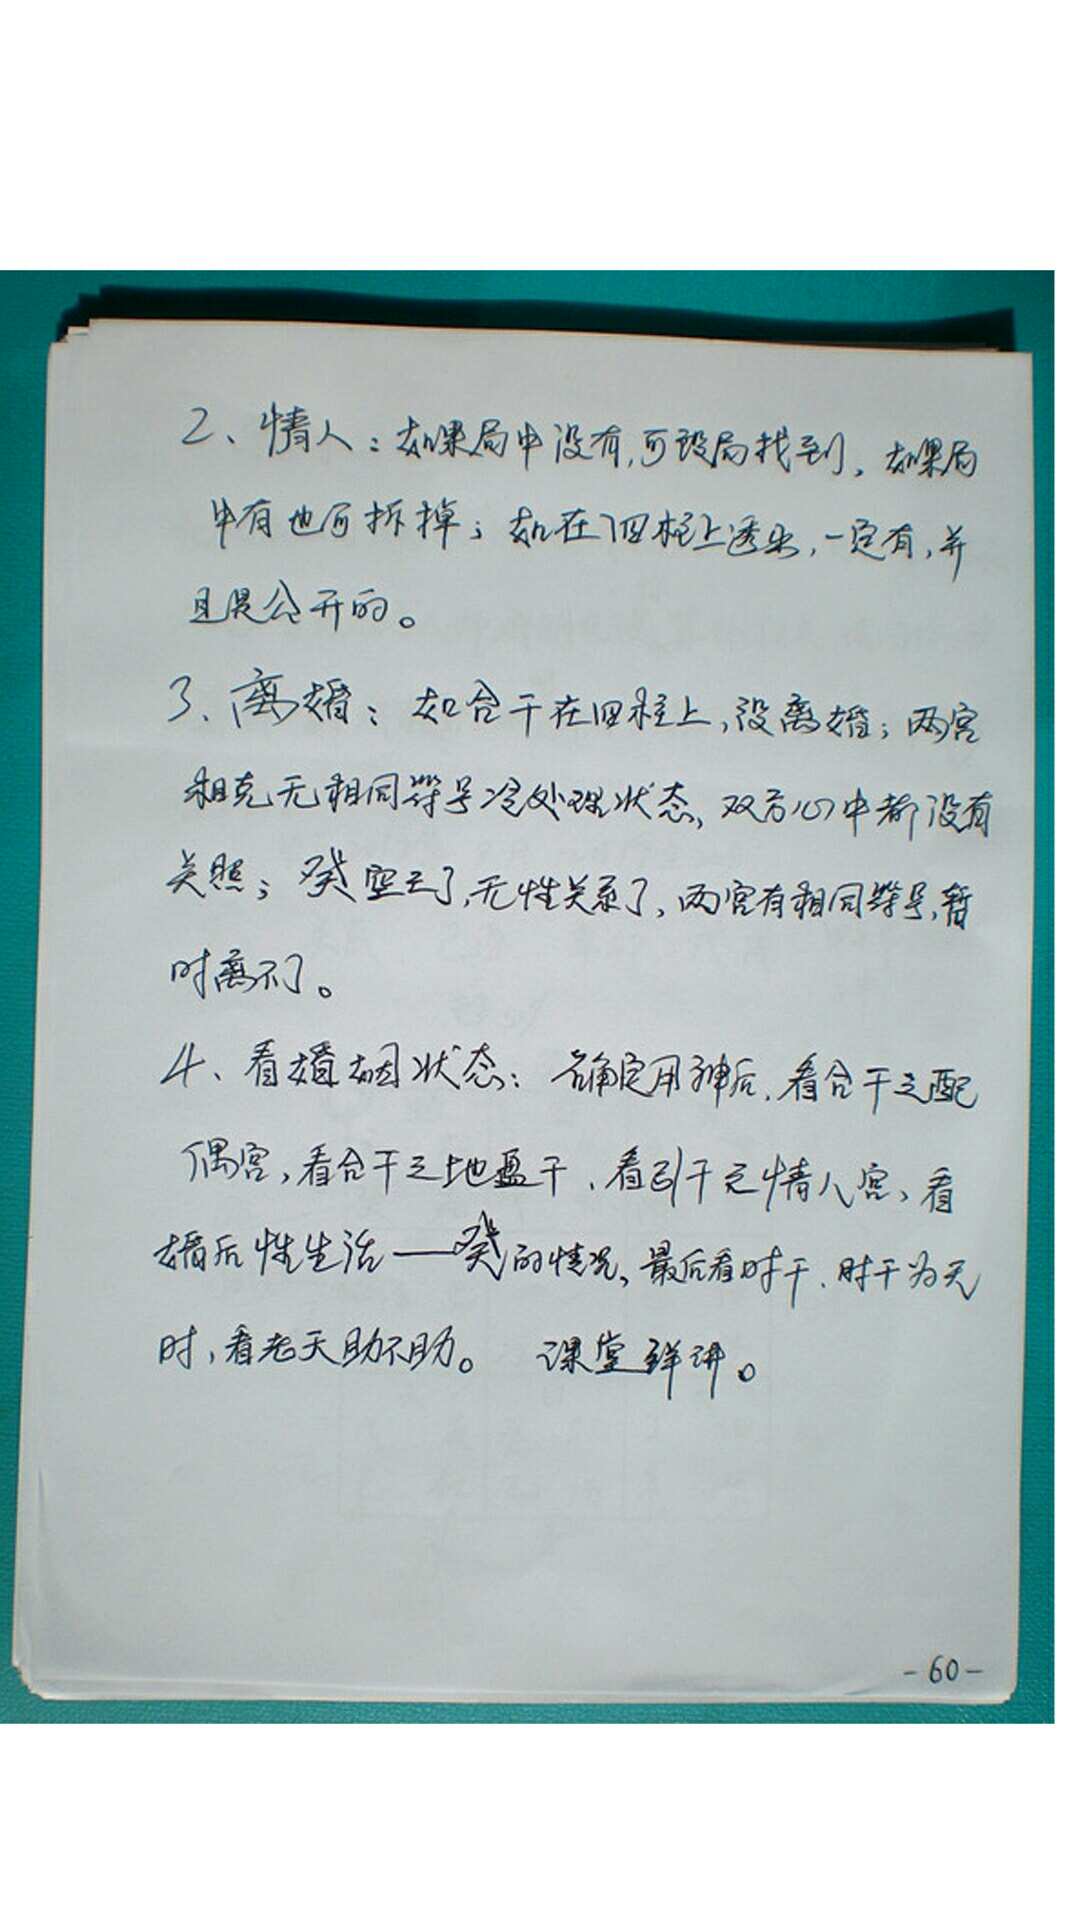 2、情人：如果局中没有,可设局找到。如果局
中有也可拆掉；如在四柱上透出,一定有,并
且是公开的。
3、离婚：如合干在四柱上,没离婚；两宫
相克无相同符号冷处理状态,双方心中都没有
关照；癸空亡了,无性关系了,两宫有相同符号,暂
时离不了。
4、看婚姻状态：确定用神后,看合干之配
偶宫,看合干之地盘干、看引干之情人宫、看
婚后性生活——癸的情况,最后看时干、时干为天
时,看老天助不助。 课堂详讲。
-60-